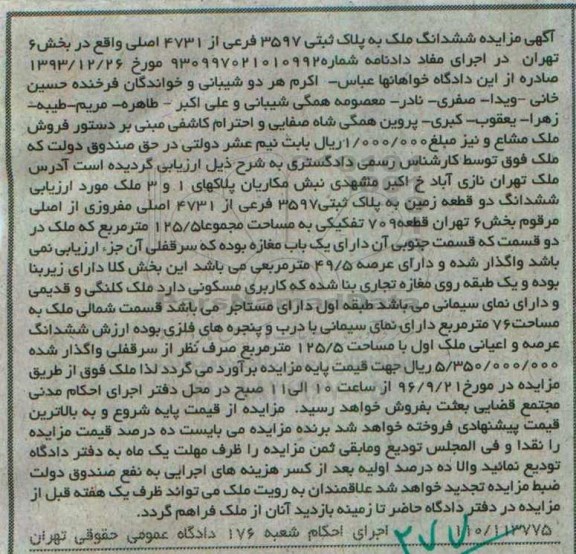 آگهی مزایده ششدانگ ملک به پلاک ثبتی ۳۵۹۷ فرعی از ۴۷۳۱ اصلی واقع در بخش۶
تهران در اجرای مفاد دادنامه شماره۹۳۰۹۹۷۰۲۱۰۱۰۹۹۲ مورخ ۱۳۹۳/۱۲/۲۶
صادره از این دادگاه خواهانها عباس- اکرم هر دو شیبانی و خواندگان فرخنده حسین
خانی -ویدا- صفری- نادر- معصومه همگی شیبانی و علی اکبر - طاهره- مریم-طیبه-
زهرا- یعقوب- کبری- پروین همگی شاه صفایی و احترام کاشفی مبنی بر دستور فروش
ملک مشاع و نیز مبلغ۱/۰۰۰/۰۰۰ریال بابت نیم عشر دولتی در حق صندوق دولت که
ملک فوق توسط کارشناس رسمی دادگستری به شرح ذیل ارزیابی گردیده است آدرس
ملک تهران نازی آباد خ اکبر مشهدی نبش مکاریان پلاکهای ۱ و ۳ ملک مورد ارزیابی
ششدانگ دو قطعه زمین به پلاک ثبتی۳۵۹۷ فرعی از ۴۷۳۱ اصلی مفروزی از اصلی
مرقوم بخش۶ تهران قطعه۷۰۹ تفکیکی به مساحت مجموعا۱۲۵/۵ مترمربع که ملک در
دو قسمت که قسمت جنوبی آن دارای یک باب مغازه بوده که سرقفلی آن جز، ارزیابی نمی
باشد واگذار شده و دارای عرصه ۴۹/۵ مترمربعی می باشد این بخش کلا دارای زیربنا
بوده و یک طبقه روی مغازه تجاری بنا شده که کاربری مسکونی دارد ملک کلنگی و قدیمی
و دارای نمای سیمانی می باشد طبقه اول دارای مستاجر می باشد قسمت شمالی ملک به
مساحت۷۶ مترمربع دارای نمای سیمانی با درب و پنجره های فلزی بوده ارزش ششدانگ
عرصه و اعیانی ملک اول با مساحت ۱۲۵/۵ مترمربع صرف نظر از سرقفلی واگذار شده
۵/۳۵۰/۰۰۰/۰۰۰ ریال جهت قیمت پایه مزایده برآورد می گردد لذا ملک فوق از طریق
مزایده در مورخ۹۶/۹/۲۱ از ساعت ۱۰ الی۱۱ صبح در محل دفتر اجرای احکام مدنی
مجتمع قضایی بعثت بفروش خواهد رسید. مزایده از قیمت پایه شروع و به بالاترین
قیمت پیشنهادی فروخته خواهد شد برنده مزایده می بایست ده درصد قیمت مزایده
را نقدا و فی المجلس تودیع ومابقی ثمن مزایده را ظرف مهلت یک ماه به دفتر دادگاه
تودیع نمائید والا ده درصد اولیه بعد از کسر هزینه های اجرایی به نفع صندوق دولت
ضبط مزایده تجدید خواهد شد علاقمندان به رویت ملک می تواند ظرف یک هفته قبل از
مزایده در دفتر دادگاه حاضر تا زمینه بازدید آنان از ملک فراهم گردد.
۱۱۰/۱۱۳۷۷۵ اجرای احکام شعبه ۱۷۶ دادگاه عمومی حقوقی تهران
۲۷۷